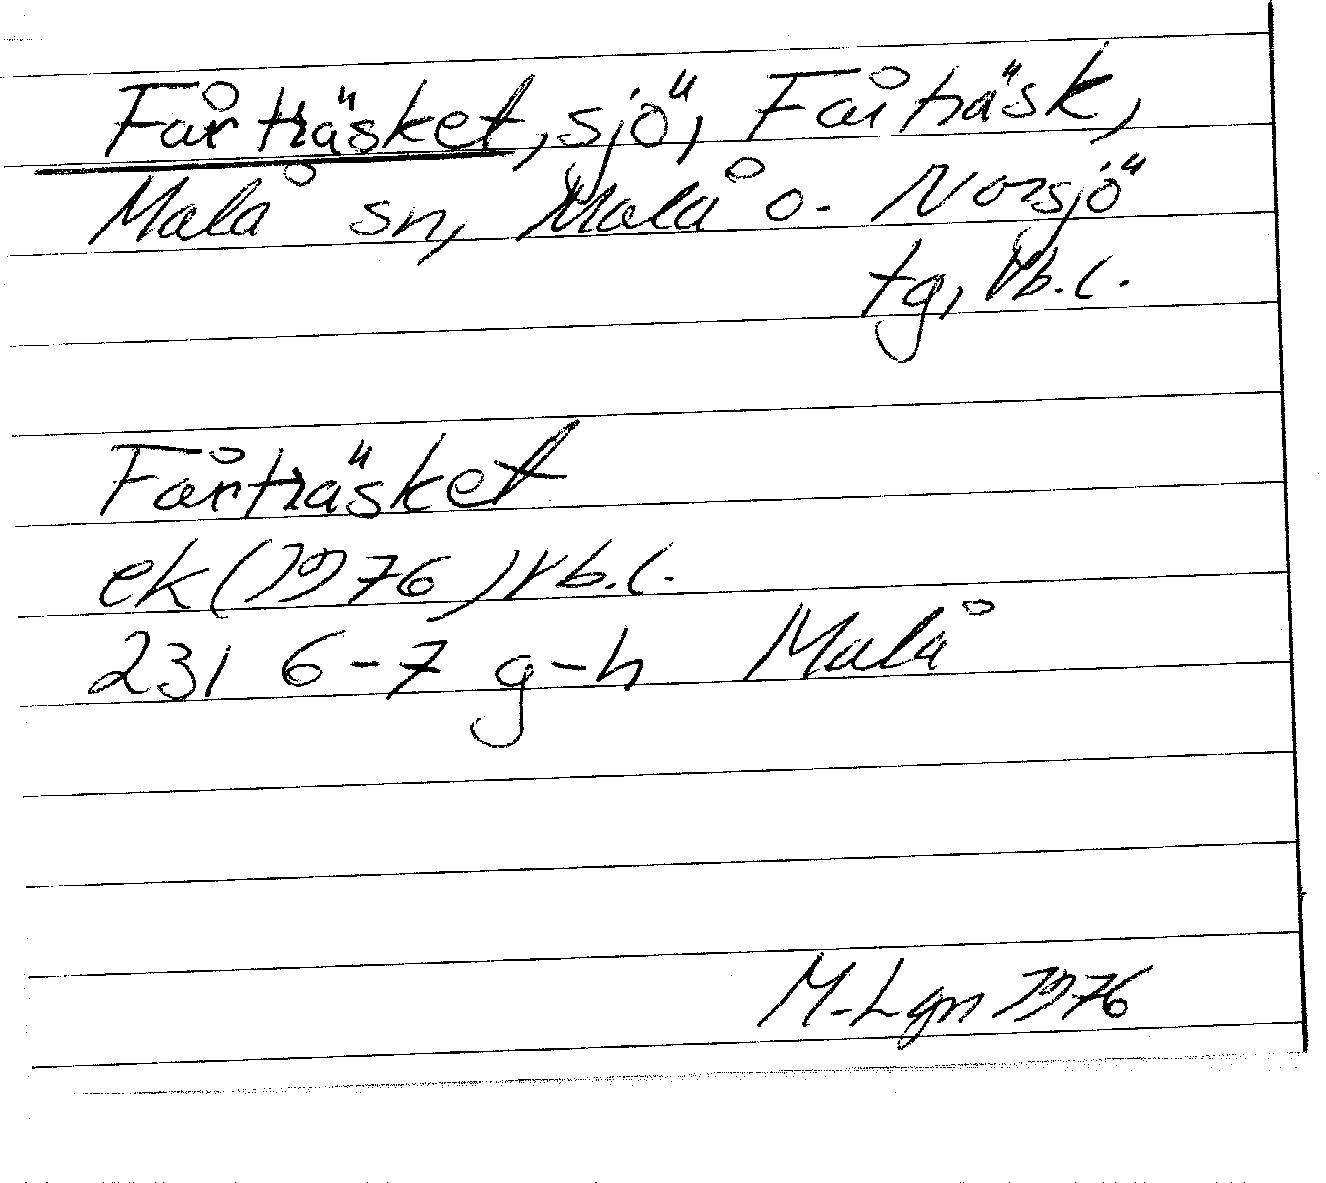 Fårträsket, sjö, Fårträsk,
Malå sn, Malå o. Norsjö
tg, Vb.l.
Fårträsket
ek (1976) Vb.l.
23I 6-7 g-h Malå
M-Lgn 1976